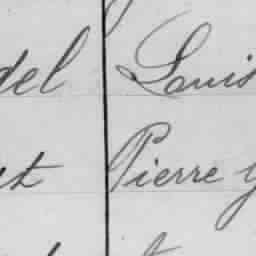 del Louis
et Pierre y